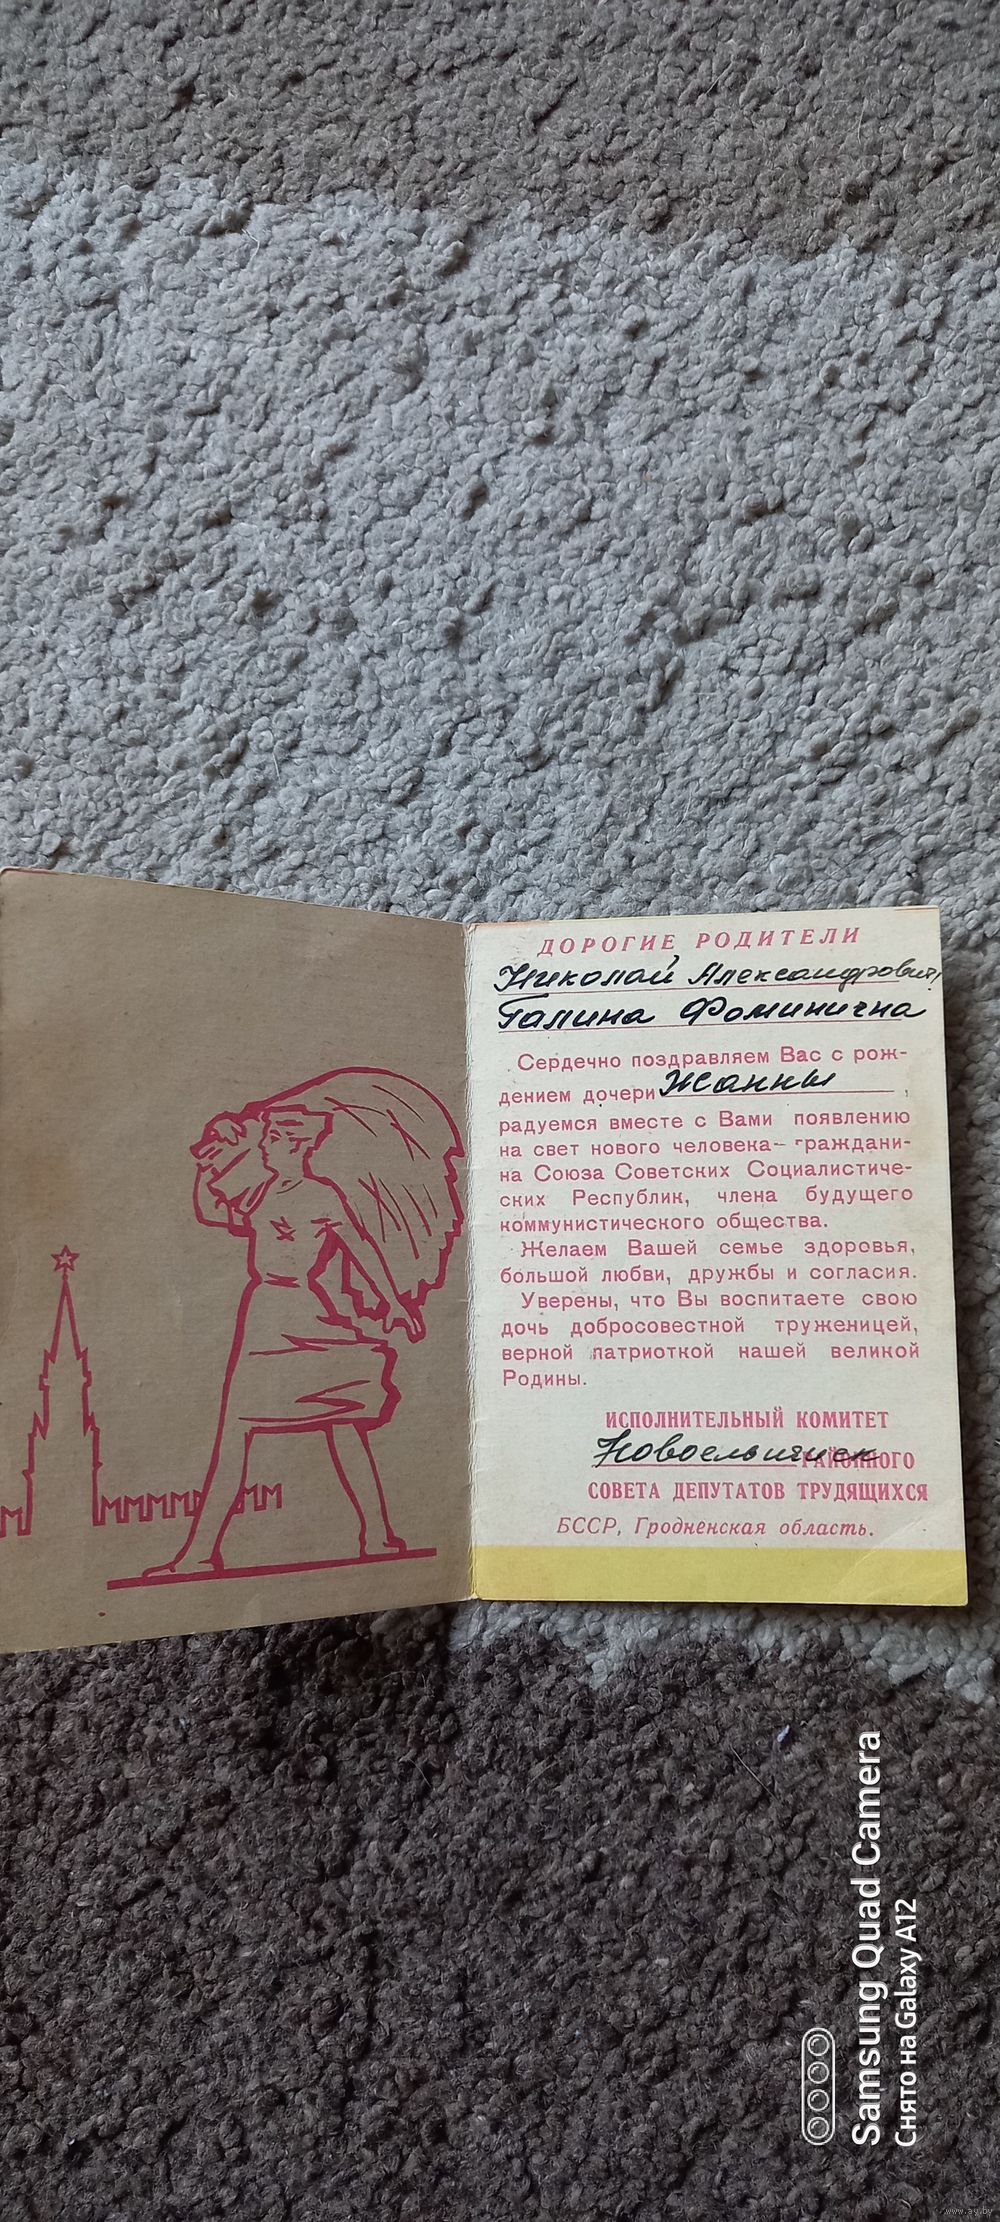 ДОРОГИЕ РОДИТЕЛИ
Николай Александрович
Галина Фоминична
Сердечно поздравляем Вас с рож-
дением дочери Жанны,
радуемся вместе с Вами появлению
на свет нового человека- граждани-
на Союза Советских Социалистиче-
ских Республик, члена будущего
коммунистического общества.
Желаем Вашей семье здоровья,
большой любви, дружбы и согласия.
Уверены, что Вы воспитаете свою
дочь добросовестной труженицей,
верной патриоткой нашей великой
Родины.
ИСПОЛНИТЕЛЬНЫЙ КОМИТЕТ
РАЙОННОГО
СОВЕТА ДЕПУТАТОВ ТРУДЯЩИХСЯ
БССР, Гродненская область.
Samsung Quad Camera
Снято на Galaxy A12
www.ay.by